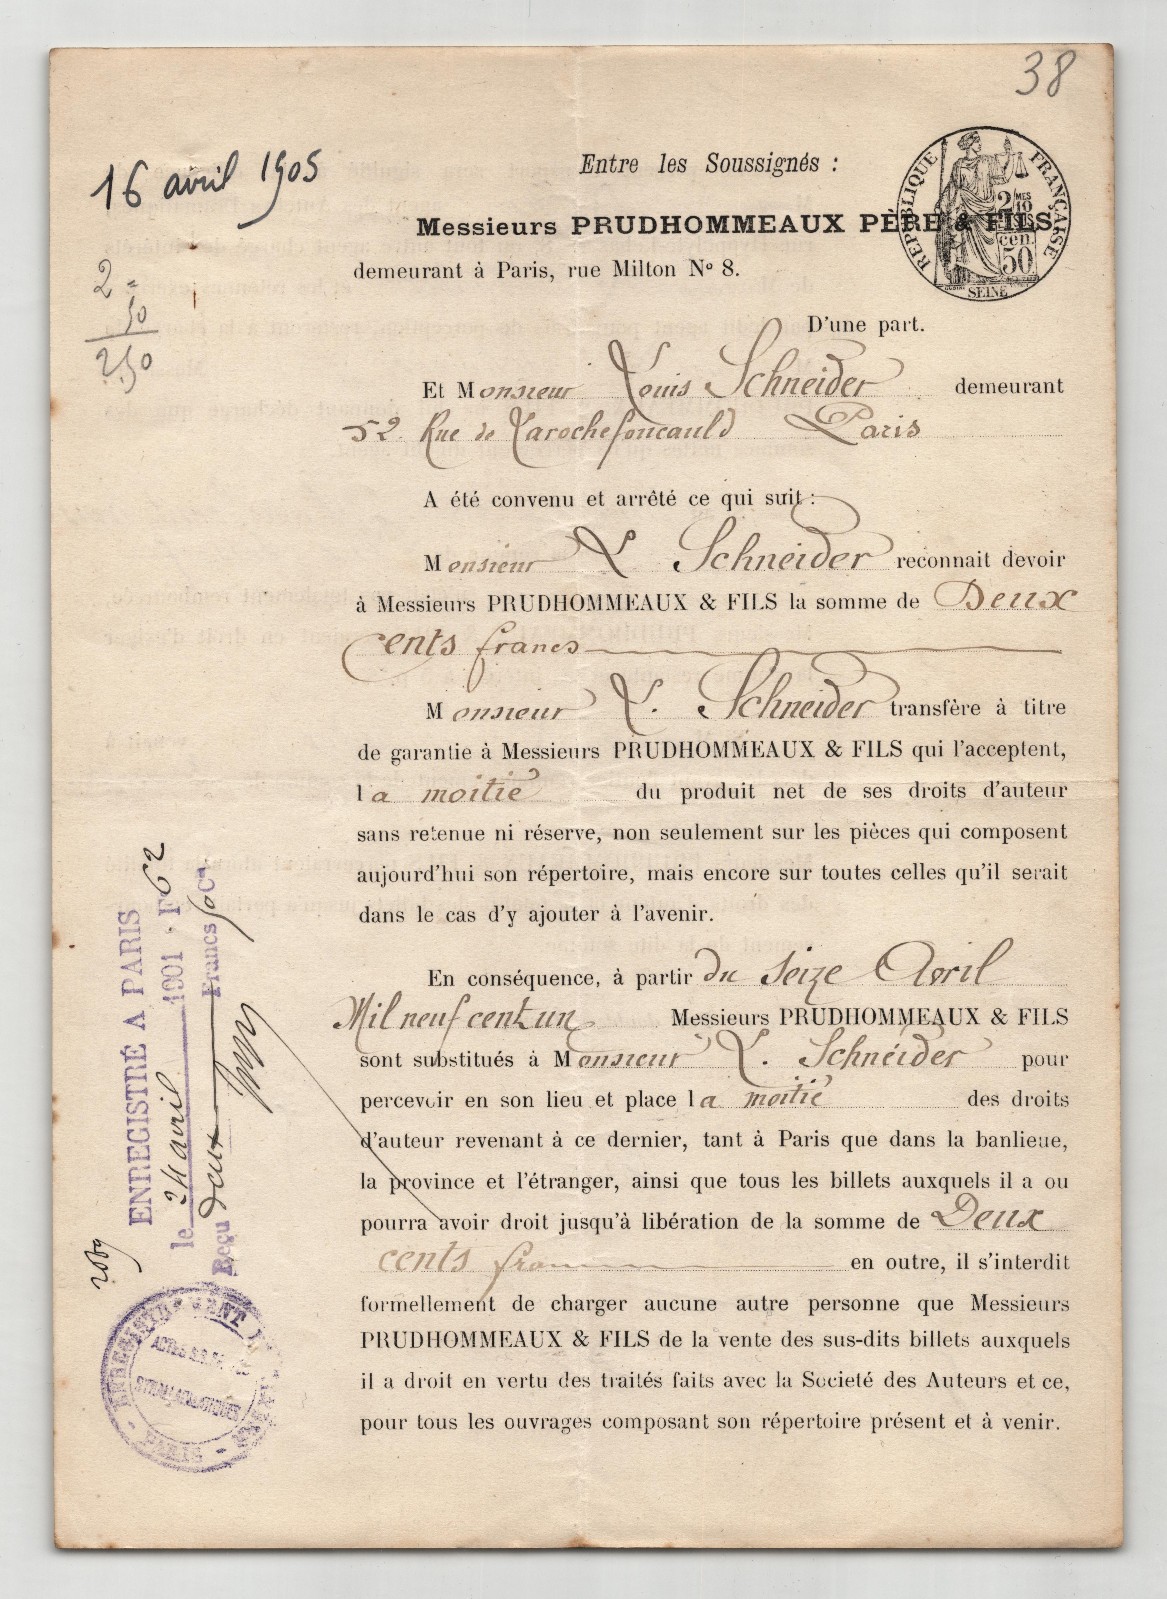 38
16 avril 1905
Entre les Soussignés :
Messieurs PRUDHOMMEAUX PÈRE & FILS
demeurant à Paris, rue Milton No 8.
RÉPUBLIQUE FRANÇAISE
2/10
cen.
50
SEINE
2 =
50
2.50
D'une part.
Et Monsieur Louis Schneider demeurant
52 Rue de Larochefoucauld Paris
A été convenu et arrêté ce qui suit :
Monsieur L Schneider reconnait devoir
à Messieurs PRUDHOMMEAUX & FILS la somme de Deux
Cents francs
Monsieur L. Schneider transfère à titre
de garantie à Messieurs PRUDHOMMEAUX & FILS qui l'acceptent,
la moitié du produit net de ses droits d'auteur
sans retenue ni réserve, non seulement sur les pièces qui composent
aujourd'hui son répertoire, mais encore sur toutes celles qu'il serait
dans le cas d'y ajouter à l'avenir.
En conséquence, à partir du Seize Avril
Mil neuf cent un Messieurs PRUDHOMMEAUX & FILS
sont substitués à Monsieur L. Schneider pour
percevoir en son lieu et place la moitié des droits
d'auteur revenant à ce dernier, tant à Paris que dans la banlieue,
la province et l'étranger, ainsi que tous les billets auxquels il a ou
pourra avoir droit jusqu'à libération de la somme de Deux
cents fran en outre, il s'interdit
formellement de charger aucune autre personne que Messieurs
PRUDHOMMEAUX & FILS de la vente des sus-dits billets auxquels
il a droit en vertu des traités faits avec la Societé des Auteurs et ce,
pour tous les ouvrages composant son répertoire présent et à venir.
ENREGISTRÉ A PARIS
le 24 avril 1901 . F° 62
Reçu deux Francs 50 Ces
PARIS